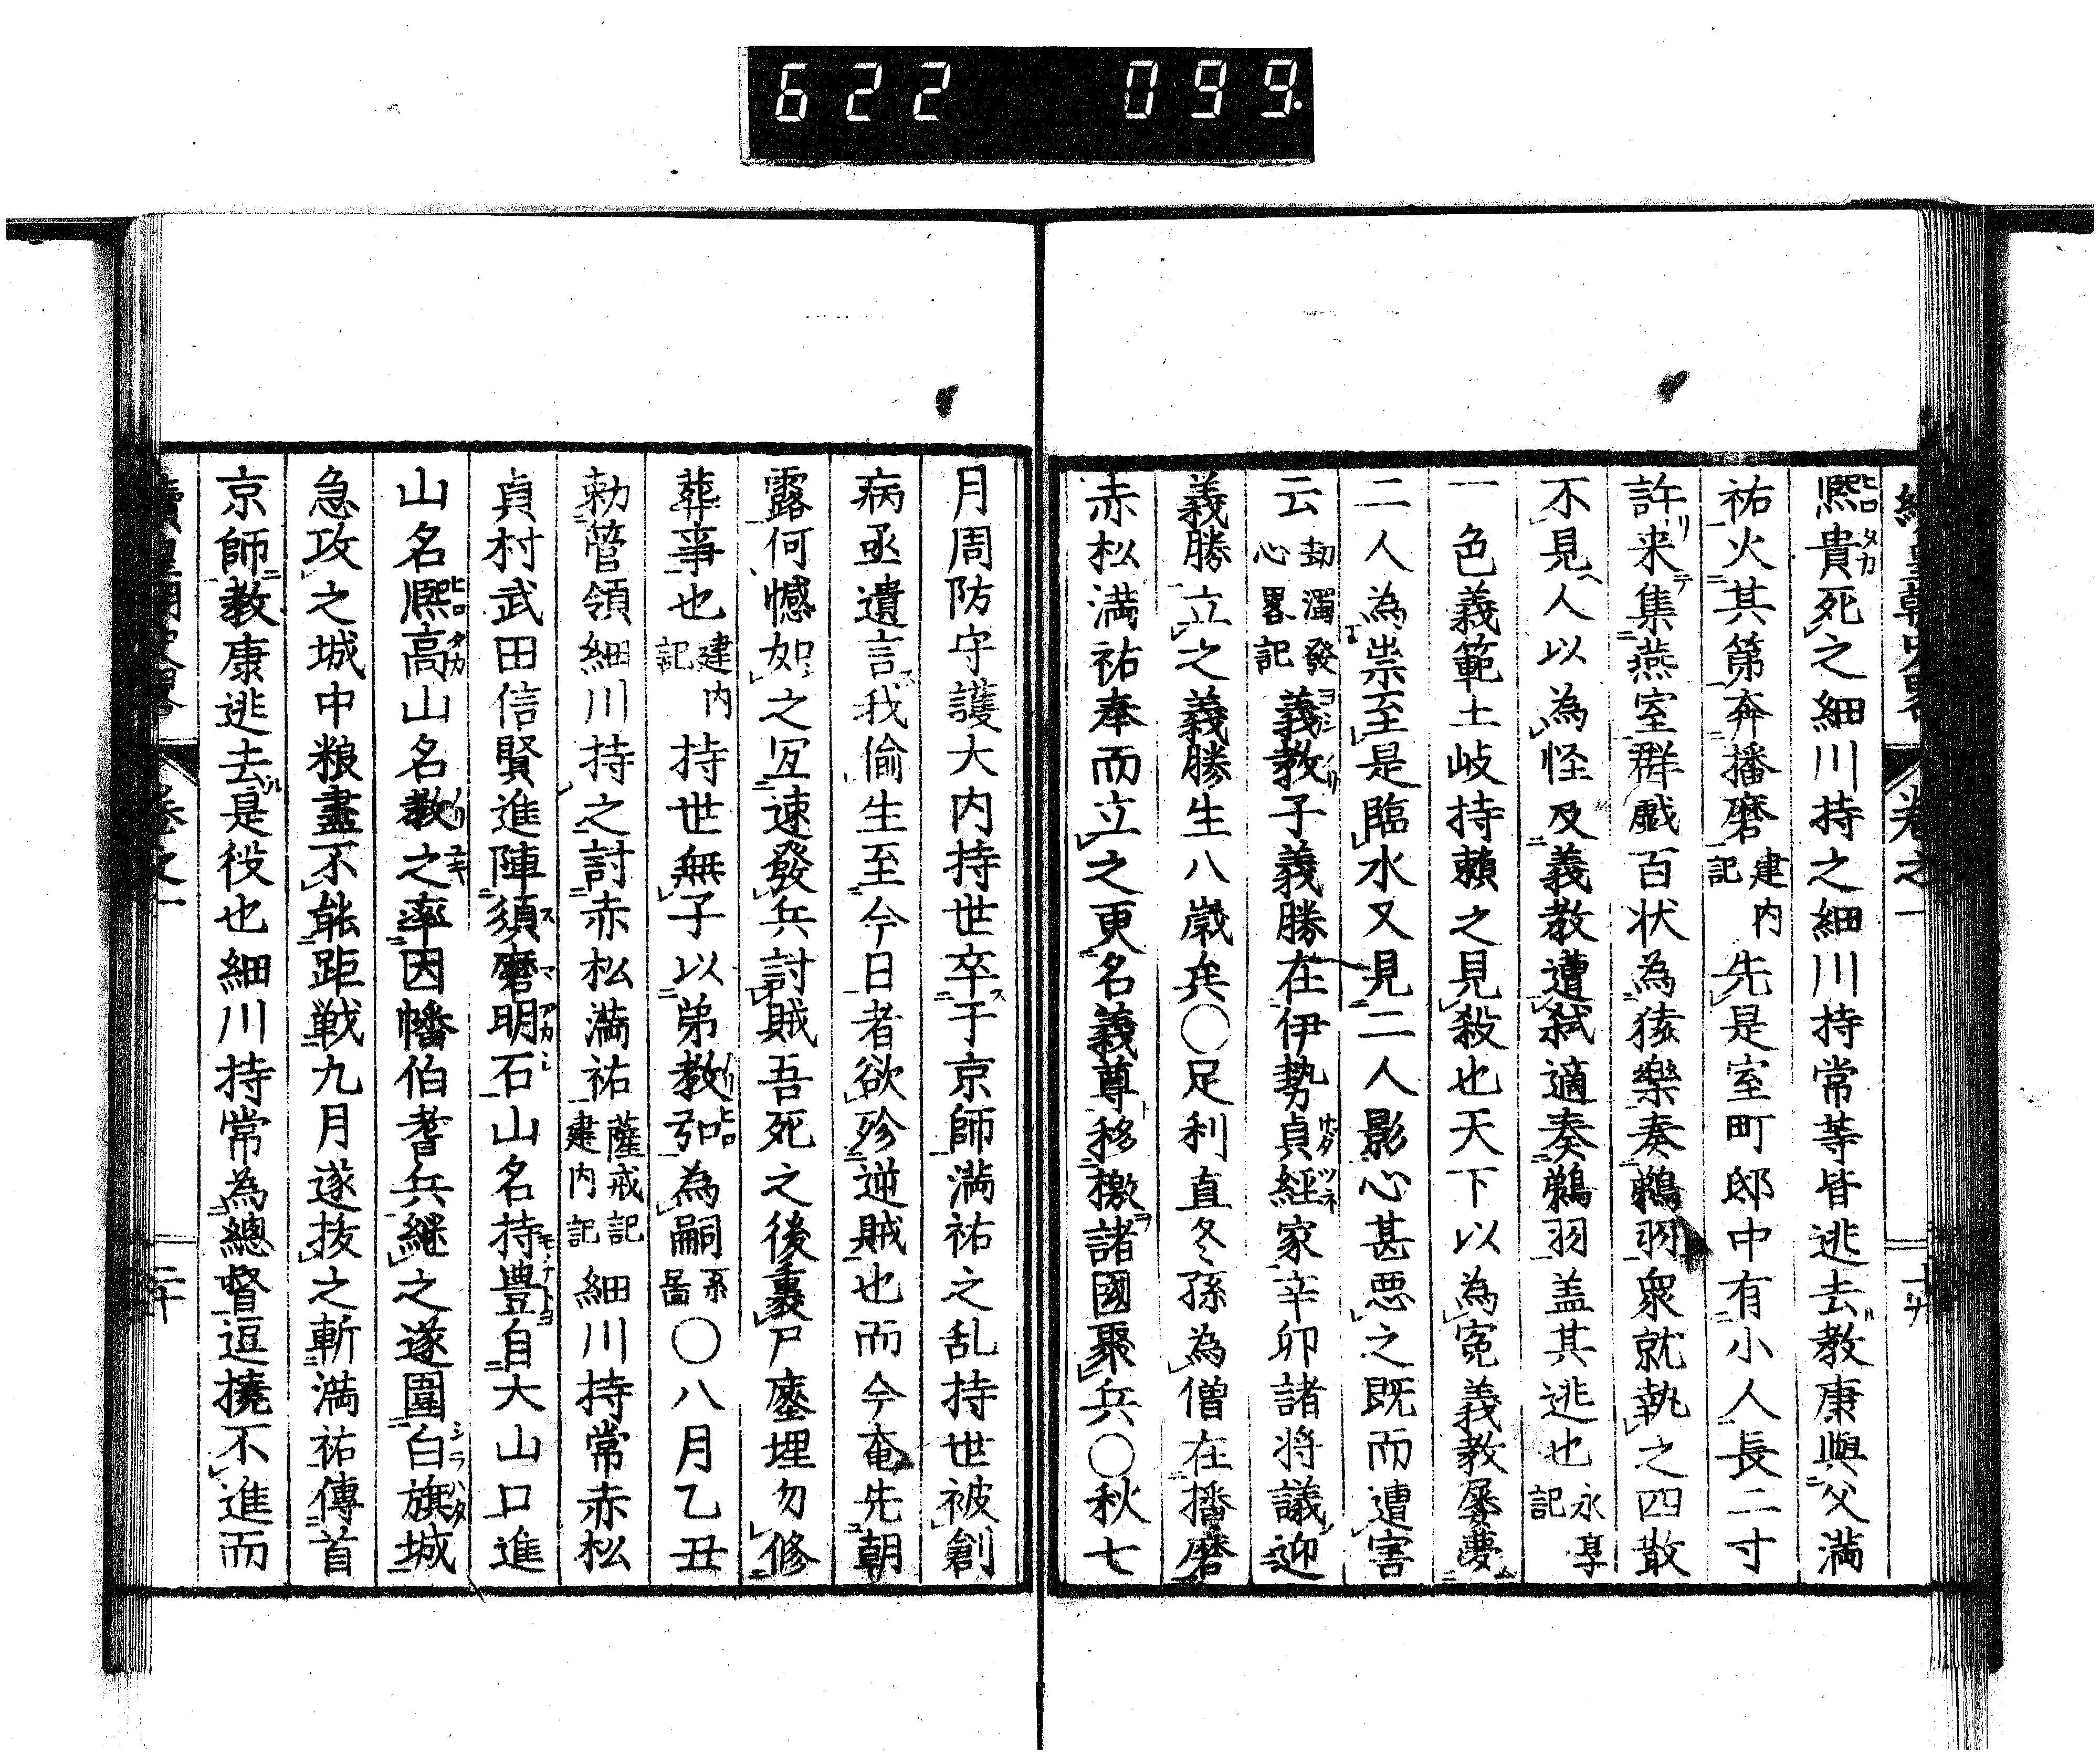 622 099.
熈貴死之細川持之細川持常等皆逃去教康與父満
祐火其第奔播磨建内記先是室町邸中有小人長二寸
許来集燕室群戯百状為猿樂奏鵜羽衆就執之四散
不見人以為怪及義教遭弑適奏鵜羽盖其逃也永享記
一色義範土岐持頼之見殺也天下以為寃義教屡夢
二人為祟至是臨水又見二人影心甚悪之既而遭害
云刧濁發心畧記義教子義勝在伊勢貞經家辛卯諸将議迎
義勝立之義勝生八歳矣〇足利直冬孫為僧在播磨
赤松満祐奉而立之更名義尊移檄諸國聚兵〇秋七
月周防守護大内持世卒于京師満祐之乱持世被創
病亟遺言我偷生至今日者欲殄逆賊也而今奄先朝
露何憾如之宜速發兵討賊吾死之後裹尸塵埋勿修
葬事也建内記持世無子以弟教弘為嗣系圖〇八月乙丑
勅管領細川持之討赤松満祐薩戒記建内記細川持常赤松
貞村武田信賢進陣須磨明石山名持豊自大山口進
山名熈高山名教之率因幡伯耆兵継之遂圍白旗城
急攻之城中粮盡不能距戦九月遂抜之斬満祐傳首
京師教康逃去是役也細川持常為總督逗撓不進而